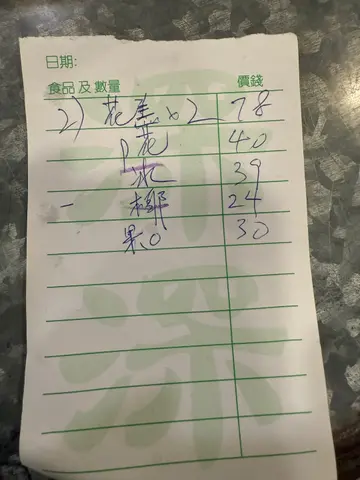 日期:
食品及數量 價錢
2) 花差x2 78
P花 40
冰 39
- 椰 24
果O 30
深
深